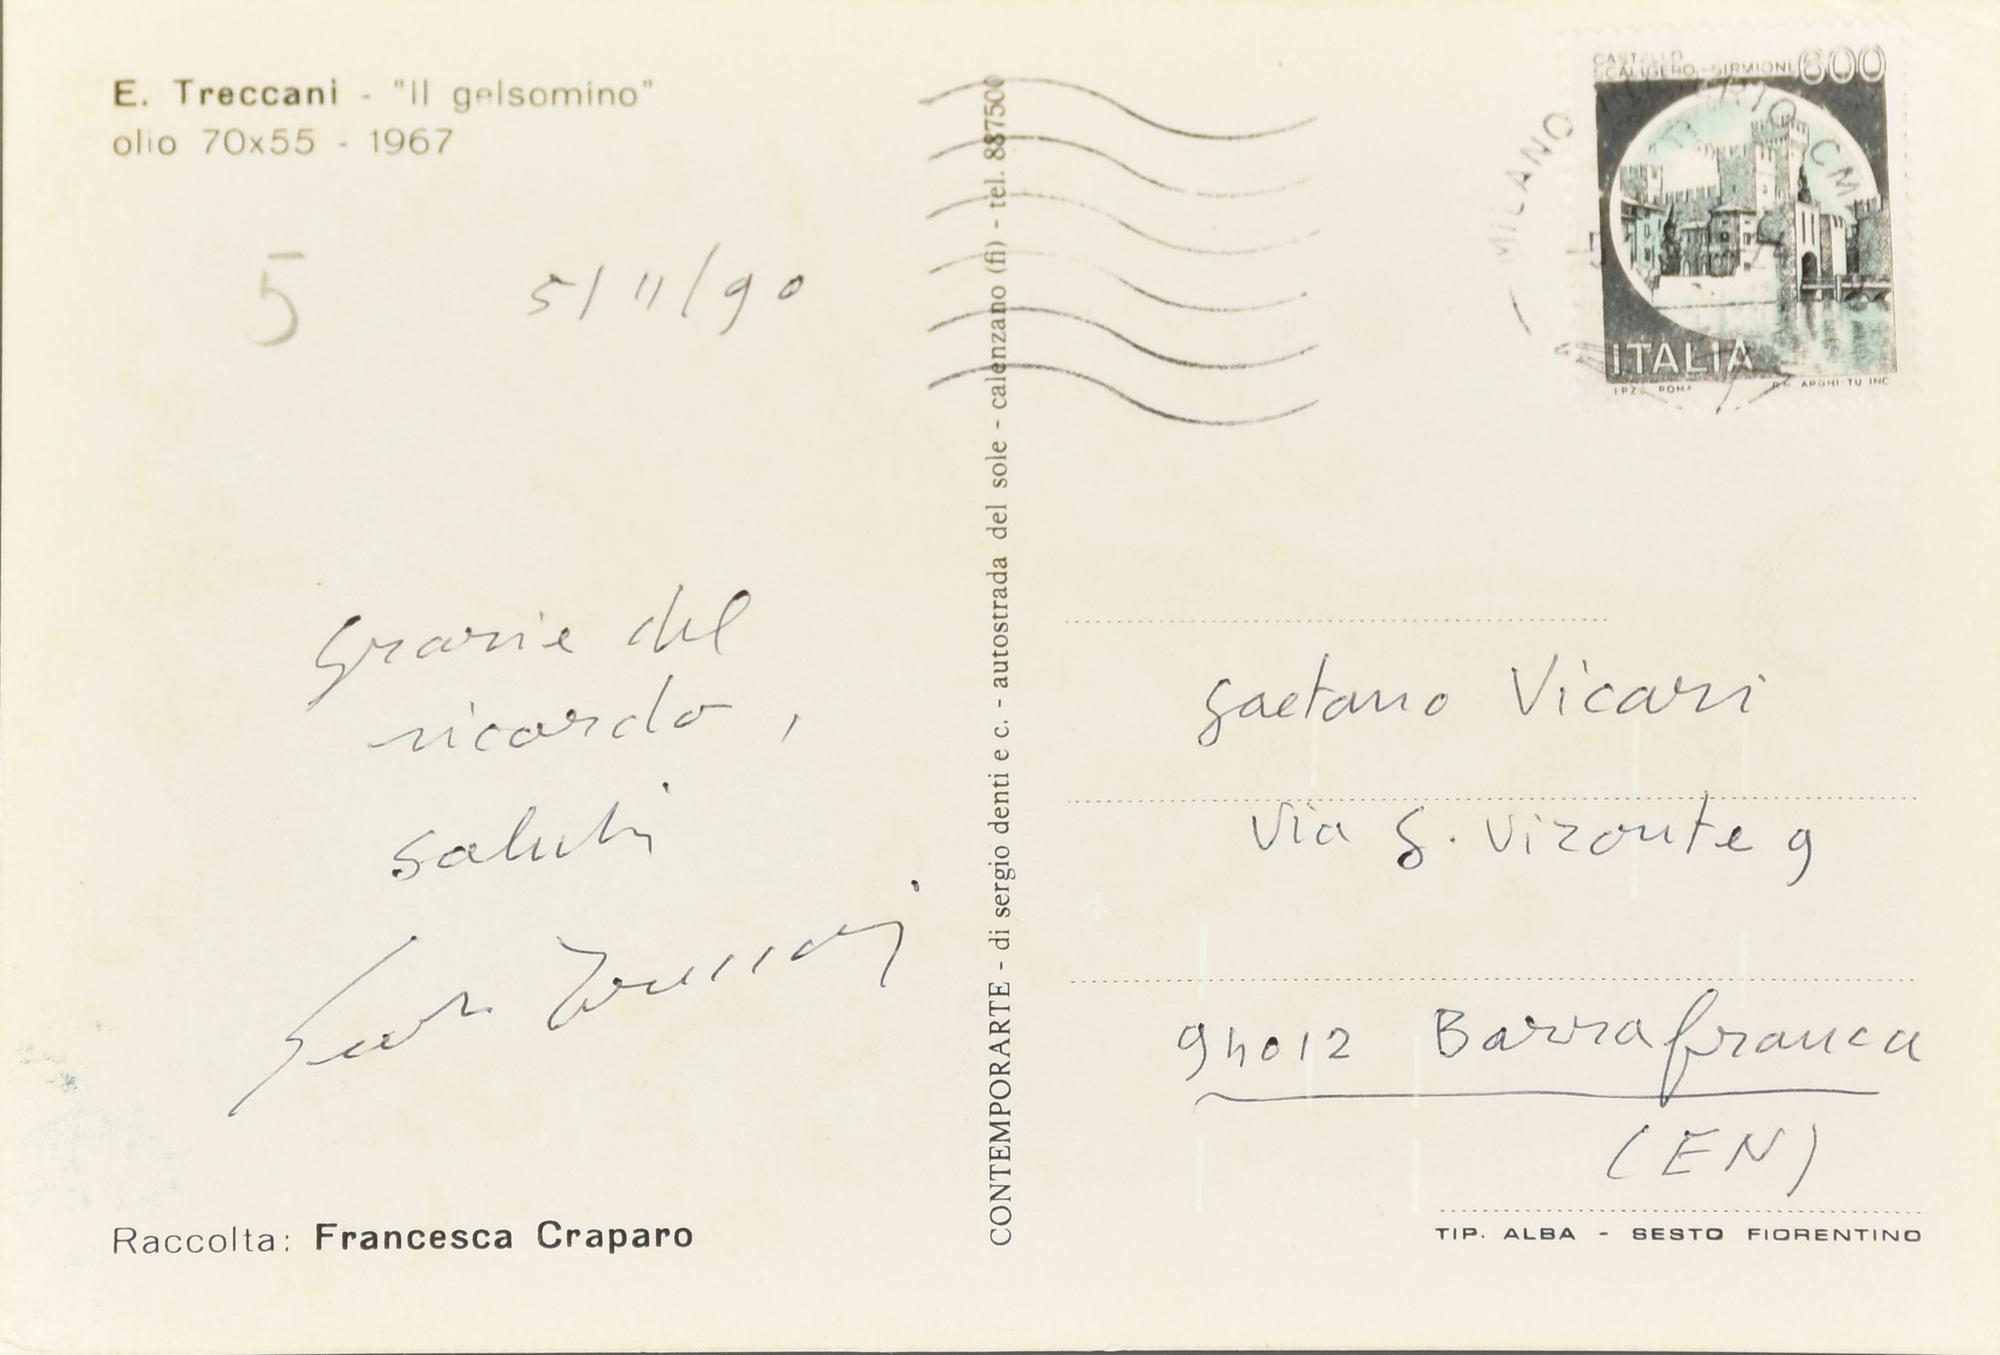 E. Treccani - "Il gelsomino"
olio 70x55 - 1967
5
5/11/90
grazie del
ricordo,
saluti
Ernesto Treccani
Raccolta: Francesca Craparo
CONTEMPORARTE - di sergio denti e c. - autostrada del sole - calenzano (fi) - tel. 887500
CASTELLO
SCALIGERO-SIRMIONE 600
ITALIA
I.P.Z.S. ROMA
MILANO
CMP
Gaetano Vicari
Via G. Vizonte 9
94012 Barrafranca
(EN)
TIP. ALBA - SESTO FIORENTINO